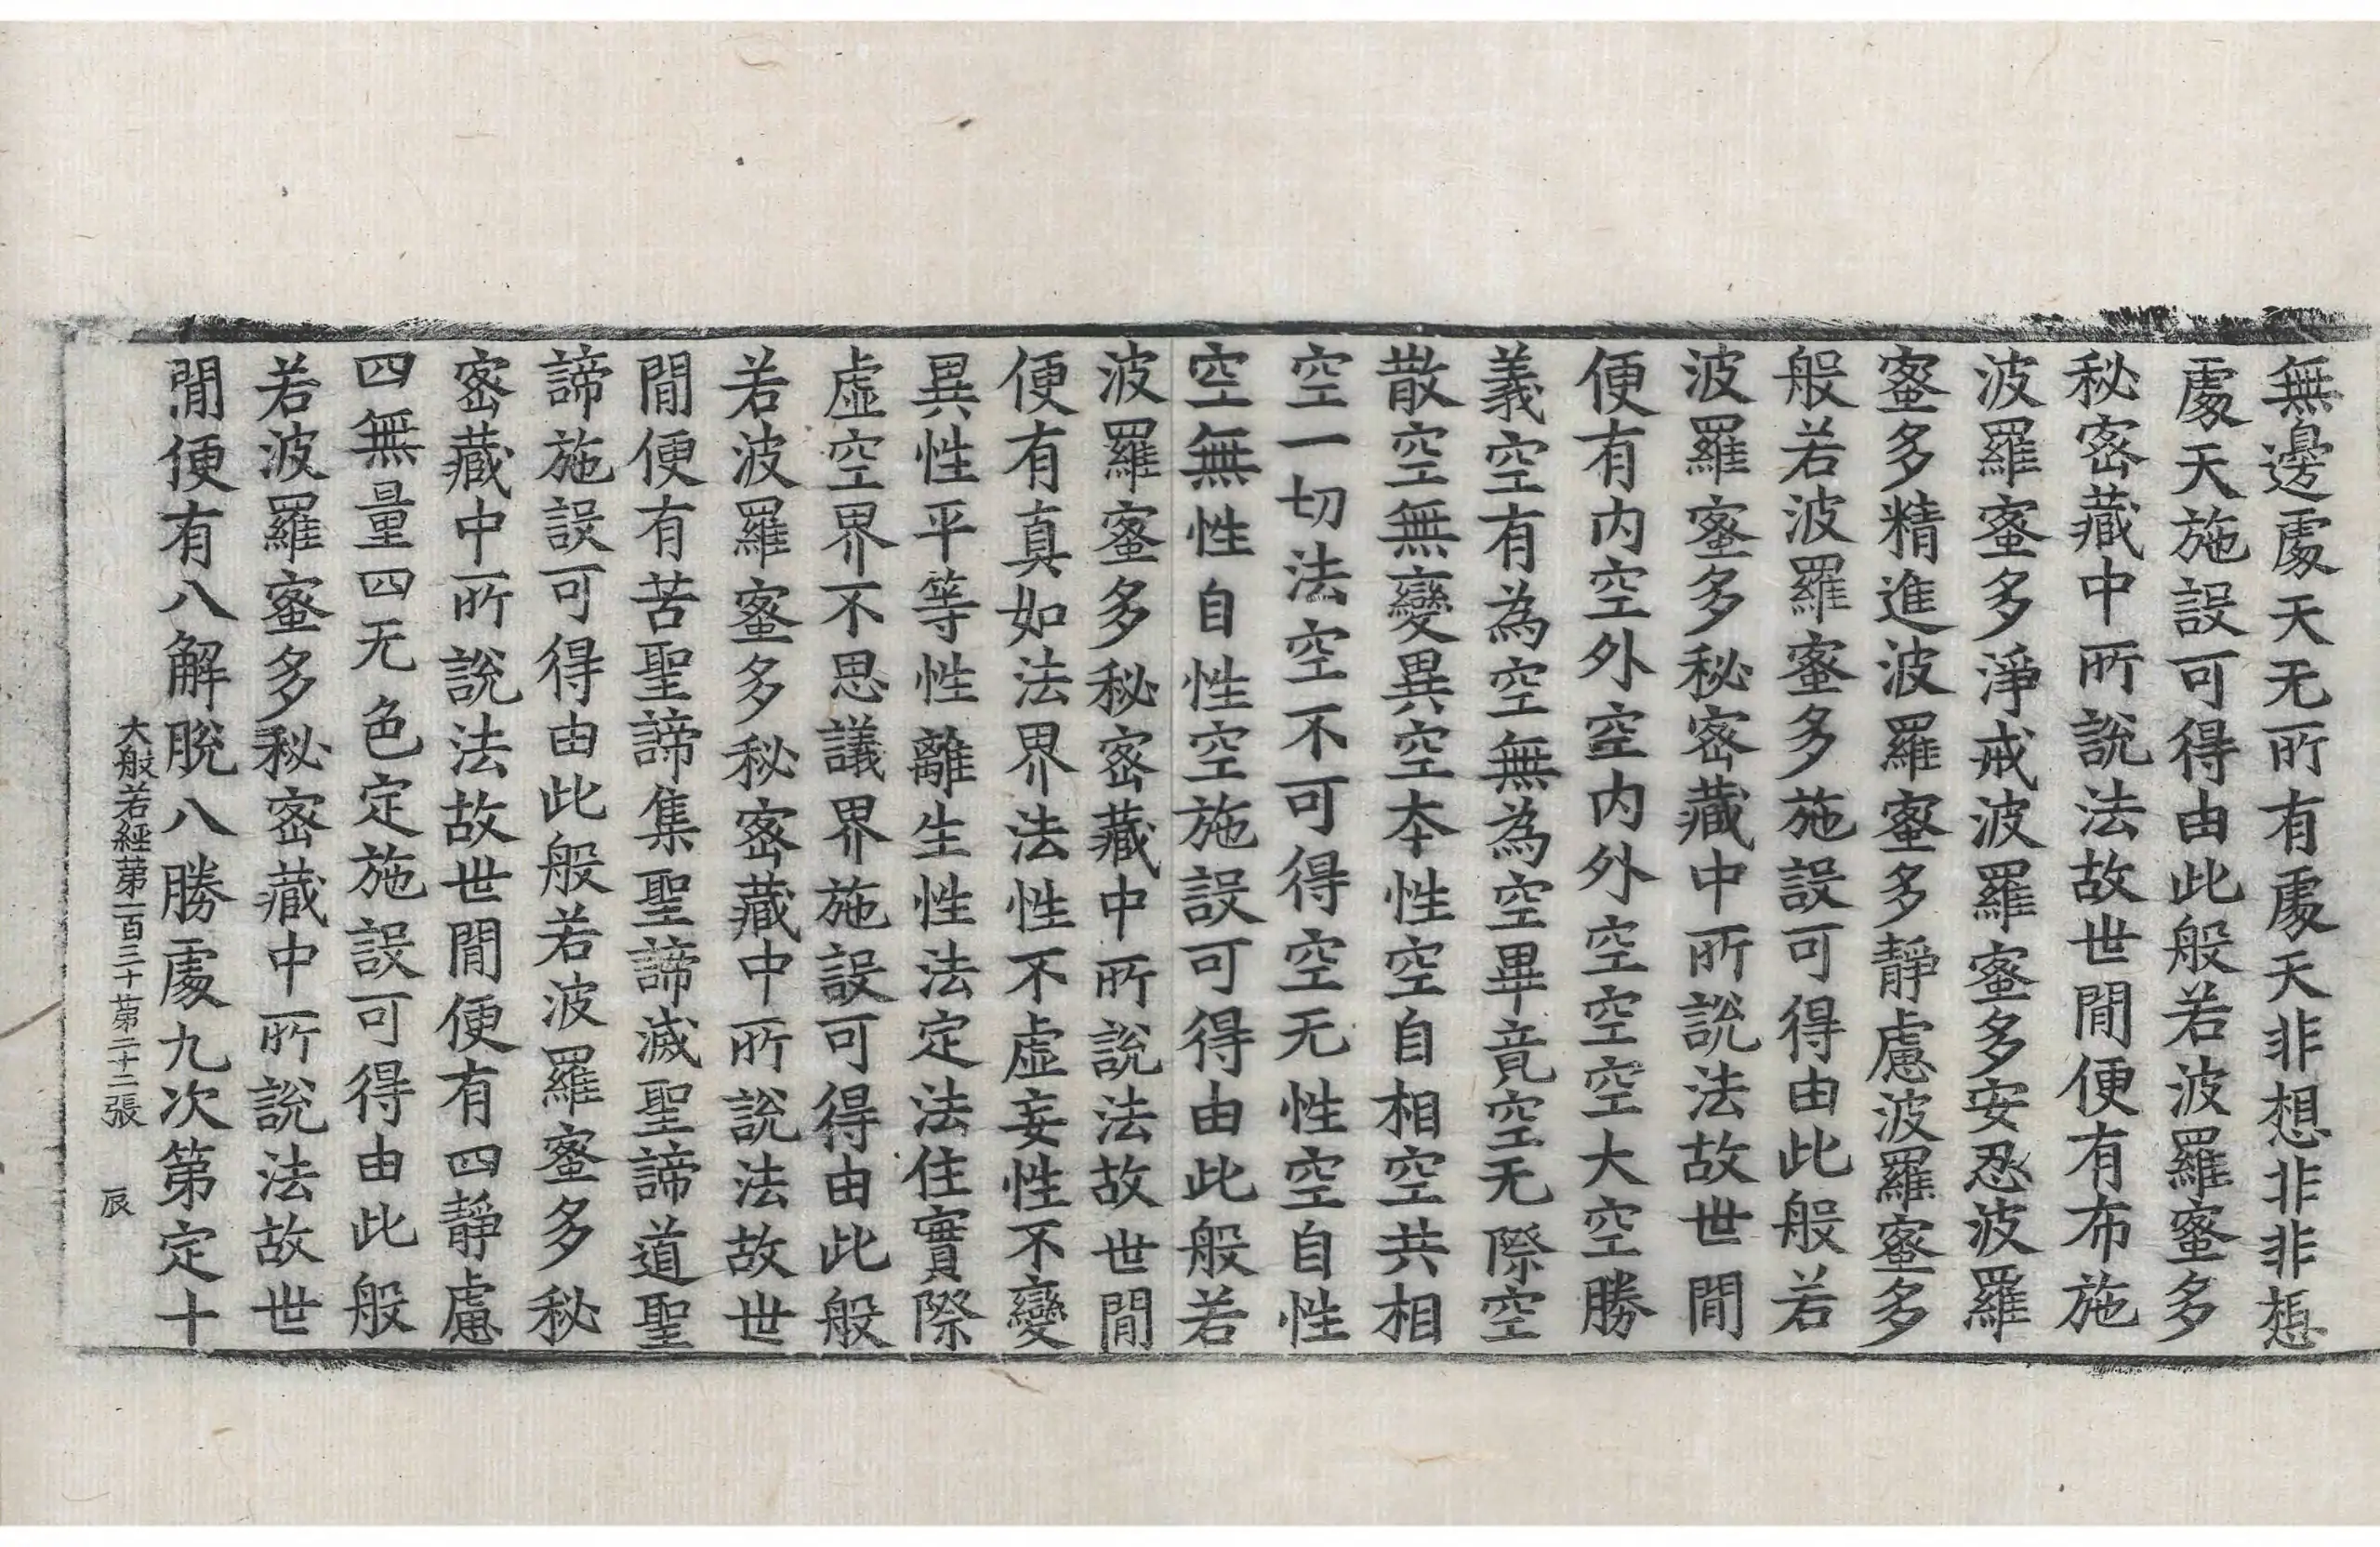 無邊處天无所有處天非想非非想
處天施設可得由此般若波羅蜜多
秘密藏中所說法故世間便有布施
波羅蜜多淨戒波羅蜜多安忍波羅
蜜多精進波羅蜜多靜慮波羅蜜多
般若波羅蜜多施設可得由此般若
波羅蜜多秘密藏中所說法故世間
便有内空外空内外空空空大空勝
義空有為空無為空畢竟空无際空
散空無變異空本性空自相空共相
空一切法空不可得空无性空自性
空無性自性空施設可得由此般若
波羅蜜多秘密藏中所說法故世間
便有真如法界法性不虛妄性不變
異性平等性離生性法定法住實際
虛空界不思議界施設可得由此般
若波羅蜜多秘密藏中所說法故世
間便有苦聖諦集聖諦滅聖諦道聖
諦施設可得由此般若波羅蜜多秘
密藏中所說法故世間便有四靜慮
四無量四无色定施設可得由此般
若波羅蜜多秘密藏中所說法故世
間便有八解脫八勝處九次第定十
大般若經第一百三十第二十二張 辰